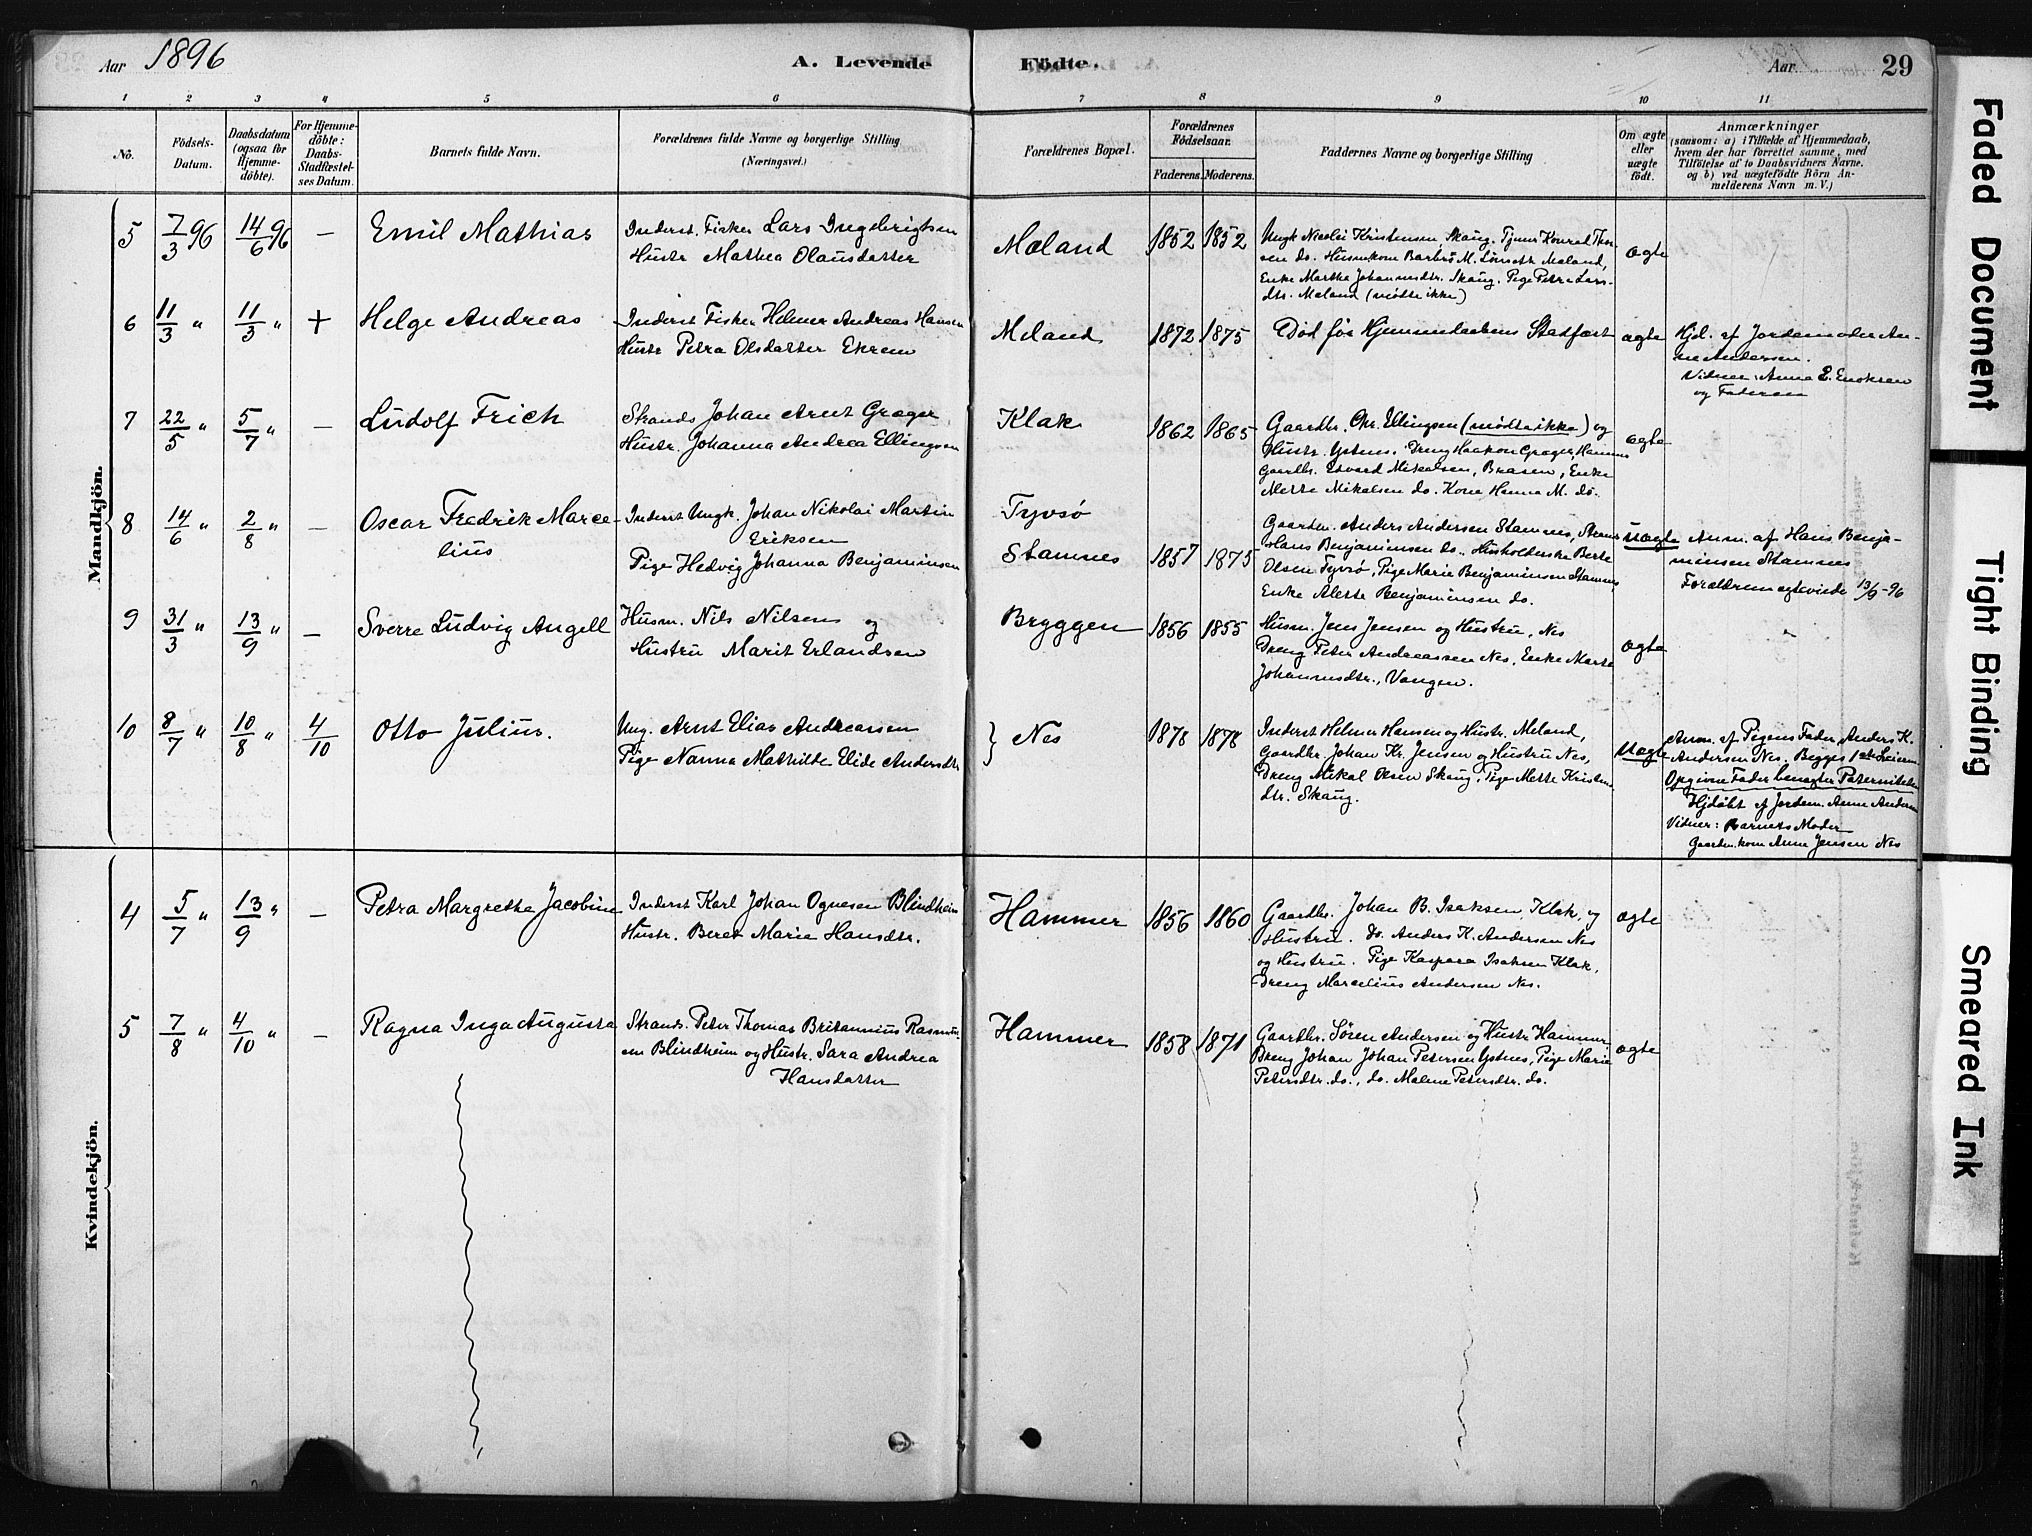 Aar 1896
A. Levende
Födte.
Aar
29
1 2 3 4 5 6 7 8 9 10 11
No.
Födsels-
Datum.
Daabsdatum
(ogsaa for
Hjemme-
döbte).
For Hjemme-
döbte:
Daabs-
Stadfæstel-
ses Datum.
Barnets fulde Navn.
Forældrenes fulde Navne og borgerlige Stilling
(Næringsvei.)
Forældrenes Bopæl.
Forældrenes
Födselsaar.
Faderens. Moderens.
Faddernes Navne og borgerlige Stilling
Om ægte
eller
uægte
født.
Anmærkninger
(saasom: a) i Tilfælde af Hjemmedaab,
hvem der har forrettet samme, med
Tilföielse af to Daabsvidners Navne.
og b) ved uægtefödte Börn An-
melderens Navn m. V.)
Mandkjön.
5 7/3 96 14/6 96 — Emil Mathias
Inderst. Fisker Lars Ingebrigtsen
Hustr Mathea Olausdatter
Mæland 1852 1852
Ungk Nicolai Kristensen Skaug. Tjener Konrad Thor-
sen do. Husmkone Barbro M. Lornetts Meland,
Enke Martha Johannesdtr. Skaug. Pige Petra Lars-
dtr. Meland (mödte ikke)
ægte
6 11/3 " 11/3 " + Helge Andreas
Inderst Fisker Helmer Andreas Hansen
Hustr Petra Olsdatter Ekrem
Meland 1872 1875
Död før Hjemmedaabens Stadfæst
ægte
Hjd. af Jordemoder An-
ne Andersen.
Vidner: Anna E. Enoksen
og Faderen
7 22/5 " 5/7 " — Ludolf Frich
Strands Johan Arnt Græger
Hustr. Johanna Andrea Ellingsen
Klak 1862 1865
Gaardbr. Chr. Ellingsen (mødte ikke) og
Hustr. Ystnes. Dreng Haakon Græger, Hammer
Gaardbr. Edvard Mikalsen, Brasen, Enke
Mette Mikalsen do. Kone Hanna M. do.
ægte
8 14/6 " 2/8 " — Oscar Fredrik Marce-
lius
Inderst Ungk. Johan Nikolai Martin
Eriksen
Pige Hedvig Johanna Benjaminsen
Tyvsø
Stamnes 1857 1875
Gaardm. Anders Andersen Stamnes,
Hans Benjaminsen do., Husholderske Berte
Olsen Tyvsø, Pige Marie Benjaminsen Stamnes,
Enke Alette Benjaminsen do.
uægte
Anm. af Hans Benja-
minsen Stamnes
Forældrene ægteviede 13/9-96
9 31/3 " 13/9 " — Sverre Ludvig Angell
Husm. Nils Nilsen og
Hustru Marit Erlandsen
Bryggen 1856 1855
Husm. Jens Jensen og Hustru, Nes
Dreng Peter Andreassen Nes, Enke Marte
Johannesdtr., Vangen.
ægte
10 8/7 " 10/8 " 4/10 Otto Julius.
Ung. Arnt Elias Andreassen
Pige Nanna Mathilde Elide Andersdtr
} Nes 1878 1878
Inderst Helmer Hansen og Hustr. Meland,
Gaardbr. Johan Kr. Jensen og Hustru Nes,
Dreng Mikal Olsen Skaug, Pige Mette Kristens-
dtr. Skaug.
uægte
Anm. af Pigens Fader Anders K.
Andersen Nes. Begges 1ste Leierm.
Opgivne Fader benegter Paterniteten
Hjdøbt af Jordem. Anne Andersen
Vidner: Barnets Moder
Gaardm.kone Anne Jensen Nes
Kvindekjön.
4 5/7 " 13/9 " — Petra Margrethe Jacobine
Inderst Karl Johan Ognesen Blindheim
Hustr. Beret Marie Hansdtr.
Hammer 1856 1860
Gaardbr. Johan B. Isaksen, Klak, og
Hustru. do. Anders K. Andersen Nes
og Hustru. Pige Kaspara Isaksen Klak,
Dreng Marcelius Andersen Nes.
ægte
5 7/8 " 4/10 " — Ragna Inga Augusta
Strands. Peter Thomas Britannius Rasmus-
sen Blindheim og Hustr. Sara Andrea
Hansdatter
Hammer 1858 1871
Gaardbr. Sören Andersen og Hustr Hammer,
Dreng Johan Johan Petersen Ystnes, Pige Marie
Petersdtr. do., do. Malene Petersdtr. do.
ægte
Faded Document
Tight Binding
Smeared Ink